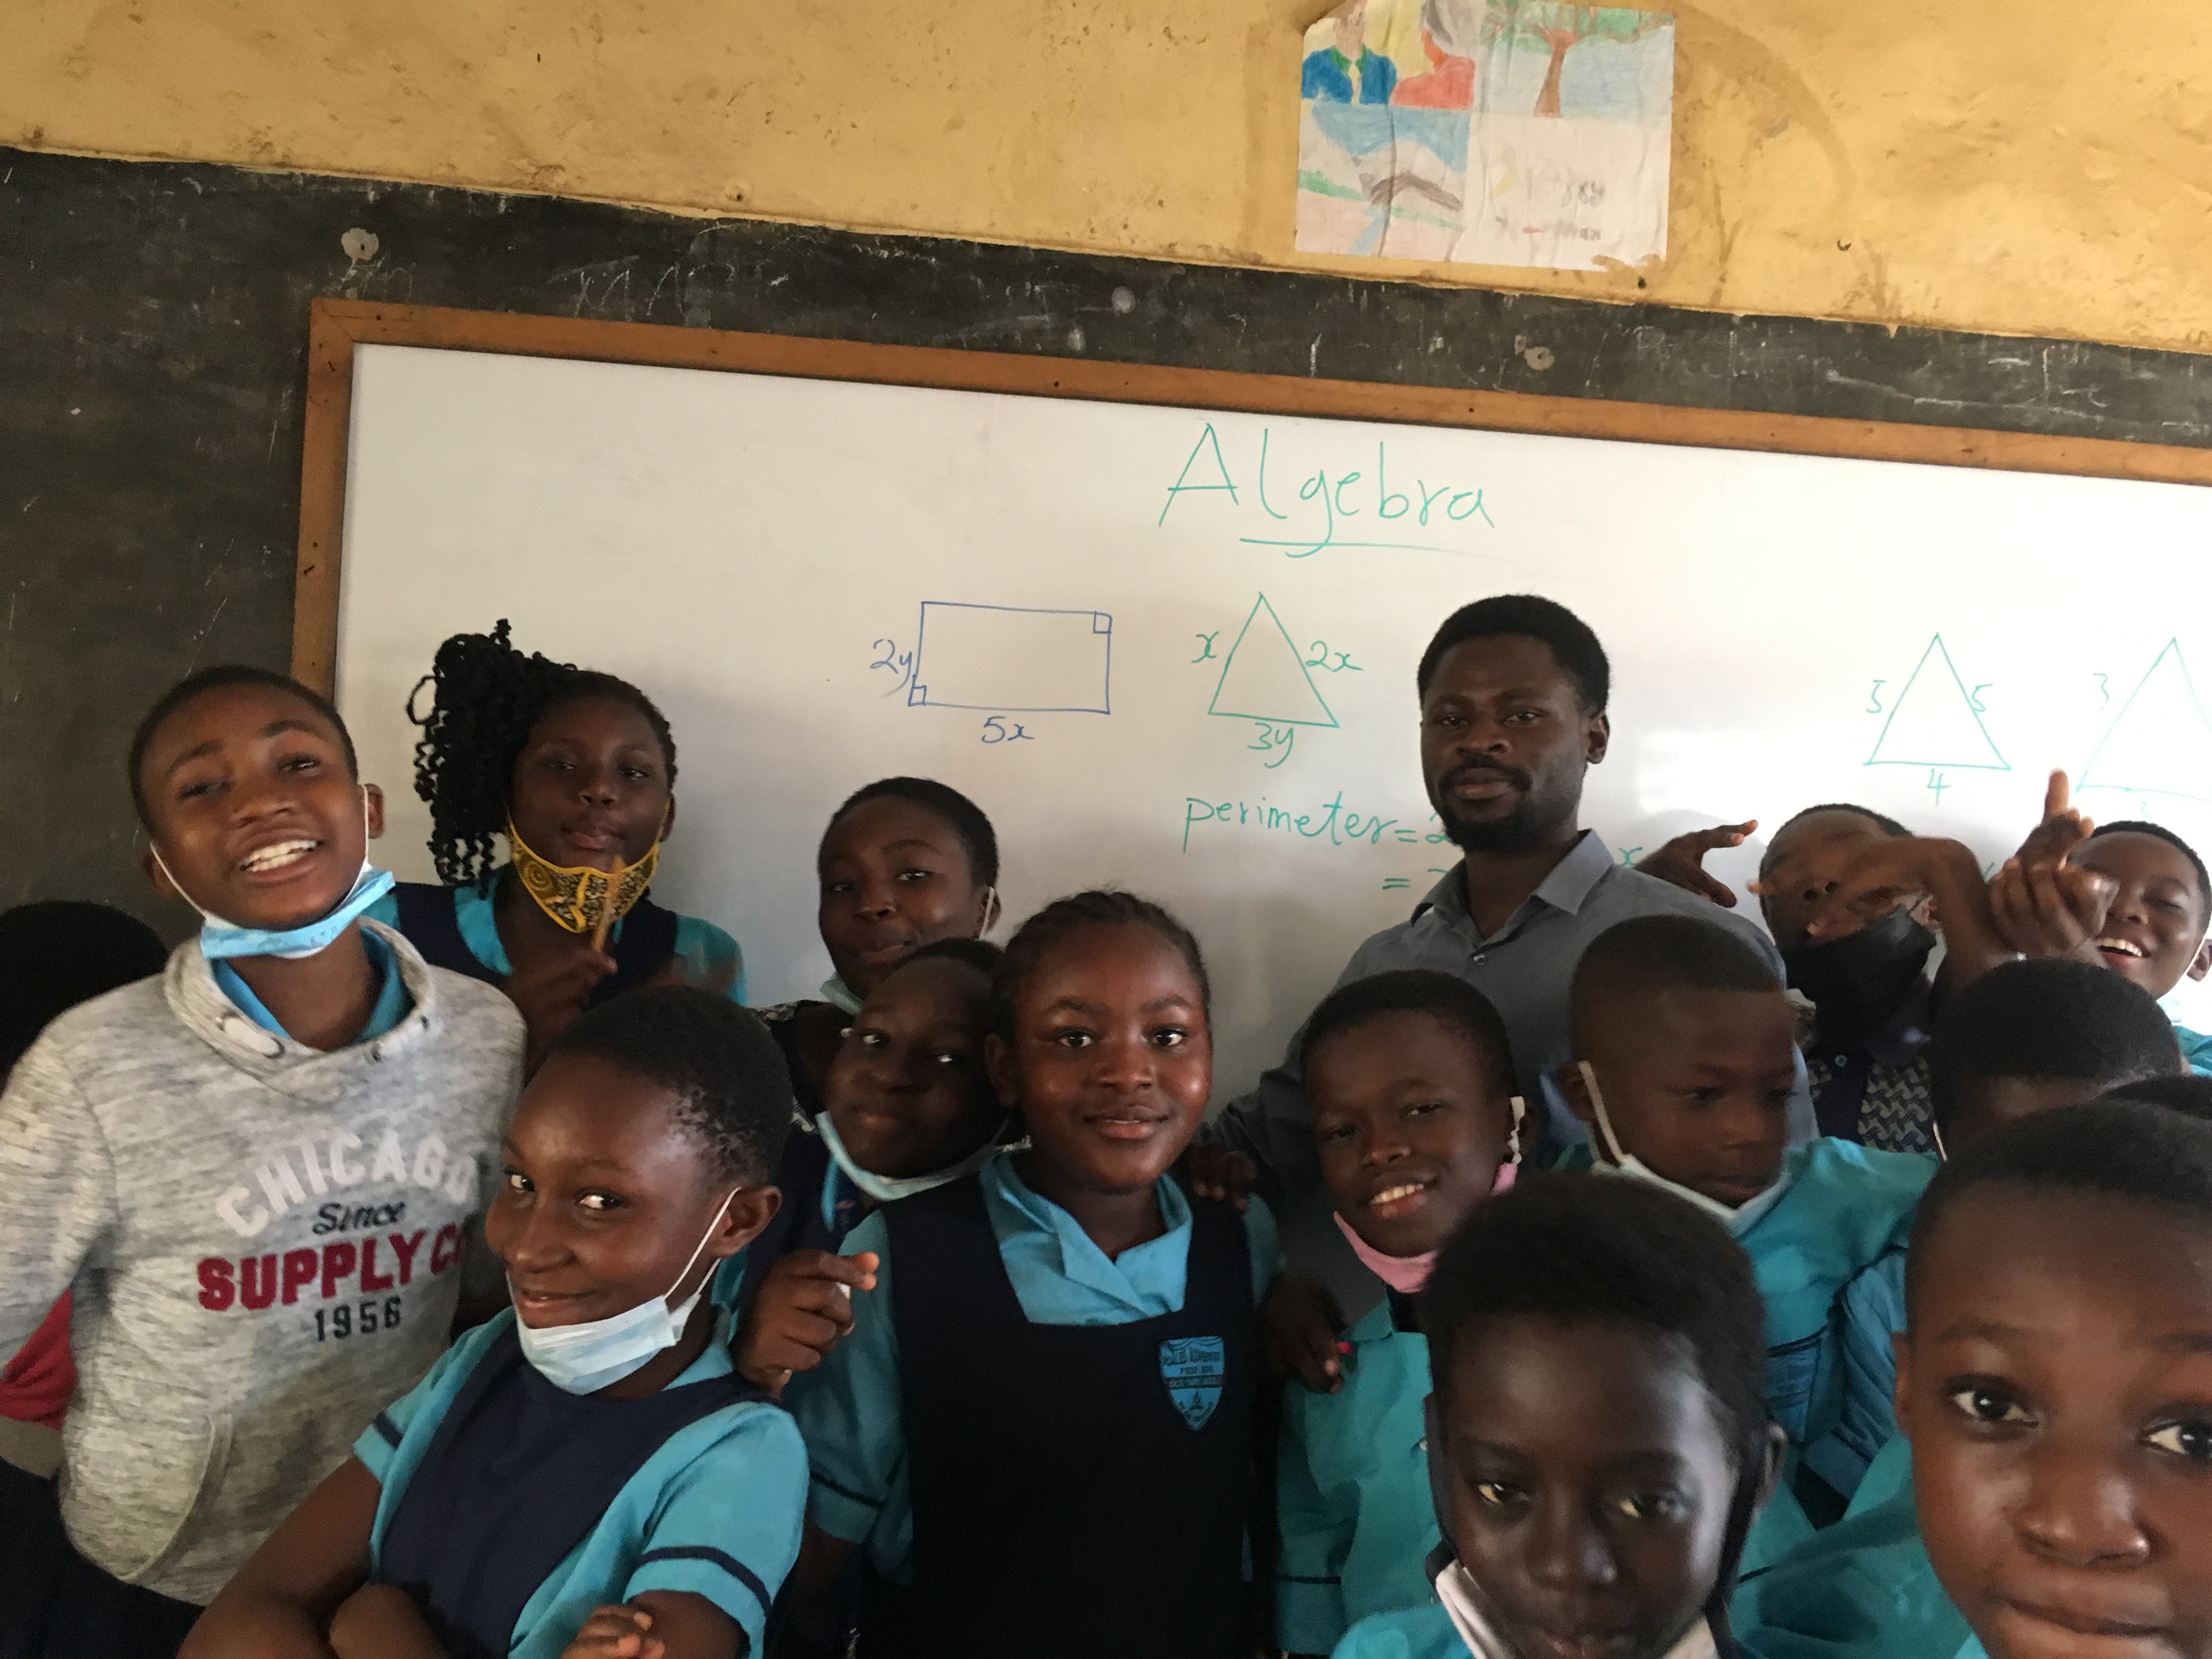 Algebra
2y
5x
x
2x
3y
5
5
4
3
perimeter = 2
=
x
CHICAGO
Since
SUPPLY C
1956